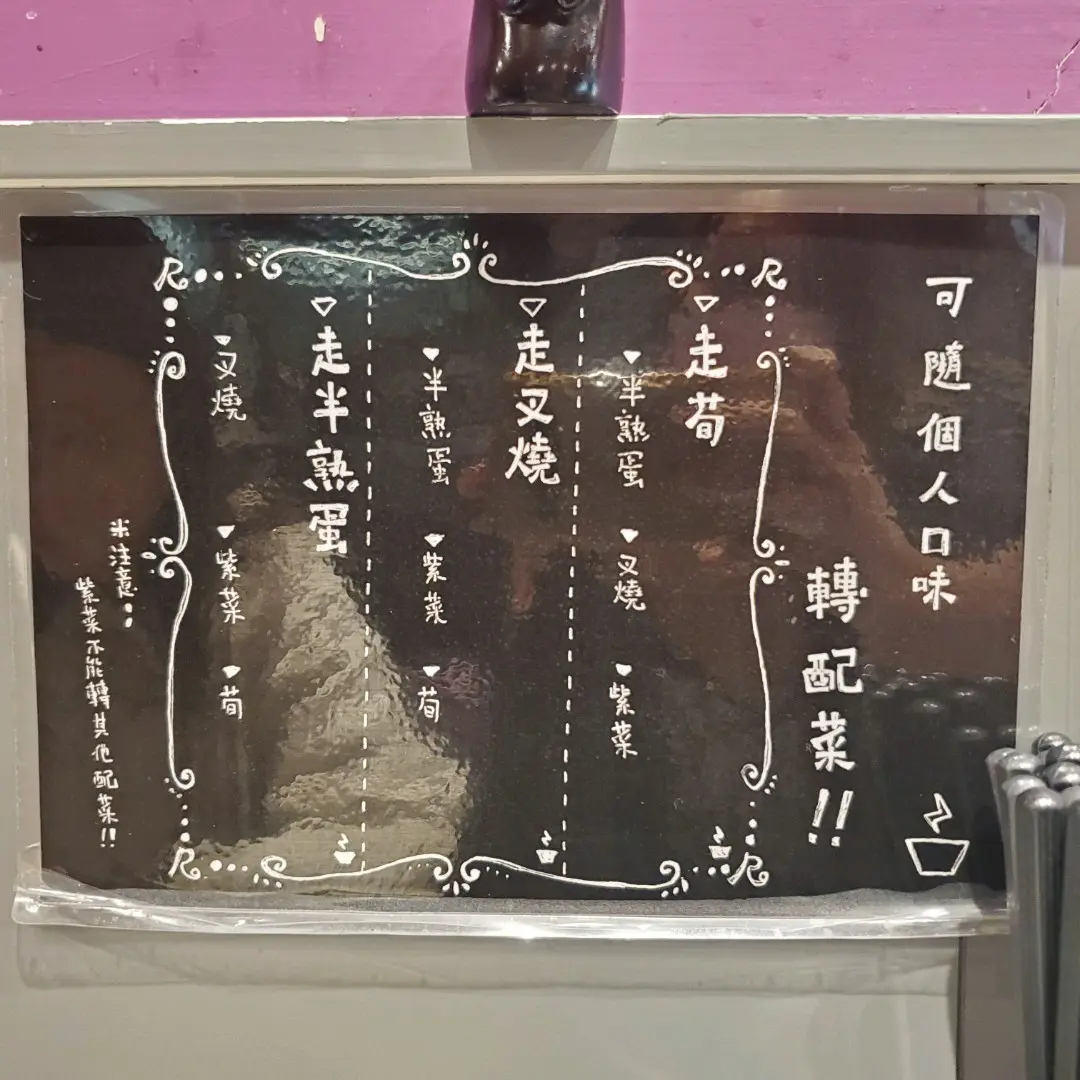 可隨個人口味
轉配菜!!
走荀
半熟蛋
叉燒
紫菜
走叉燒
半熟蛋
紫菜
荀
走半熟蛋
叉燒
紫菜
荀
米注意:
紫菜不能轉其他配菜!!